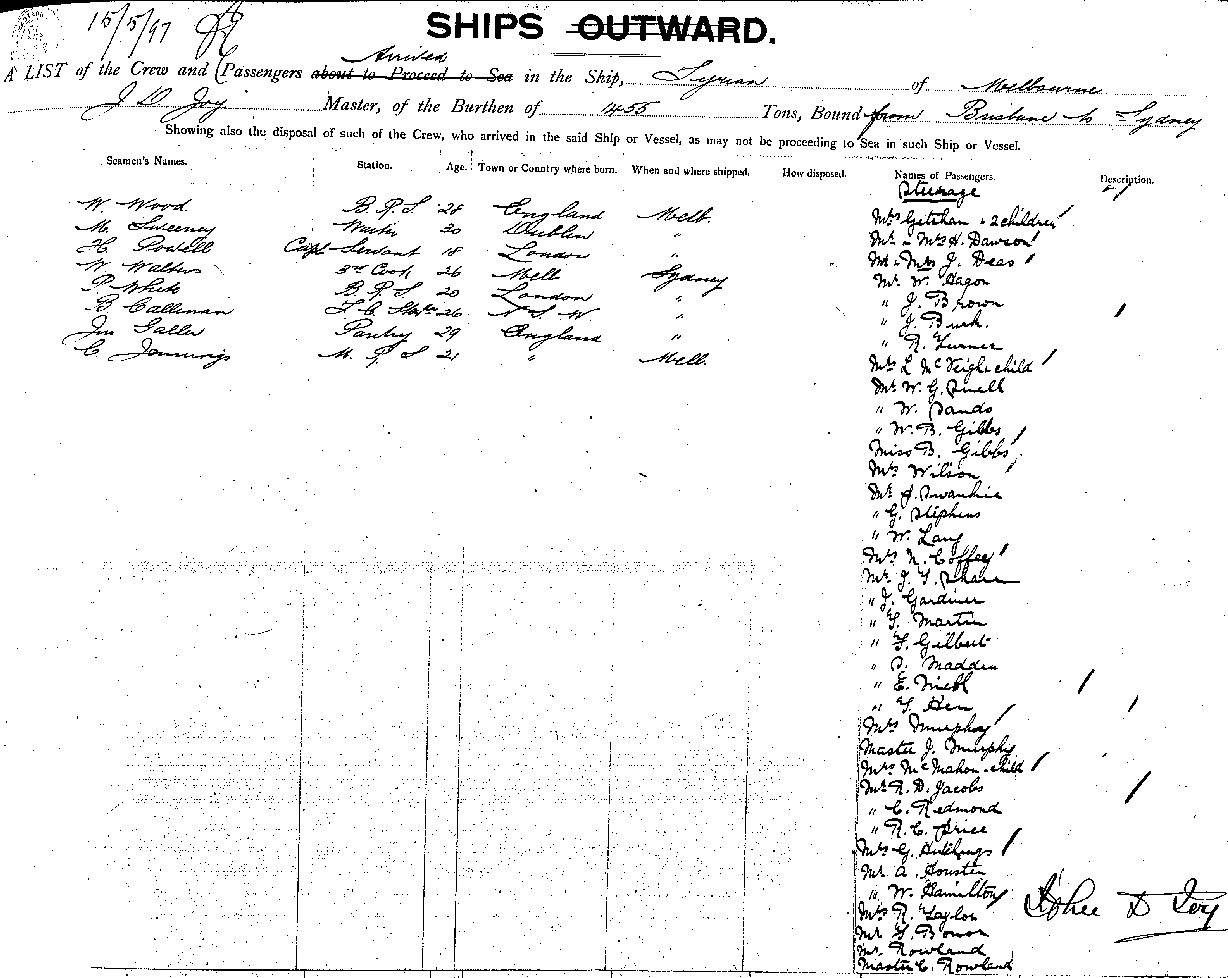 15/5/97
SHIPS OUTWARD.
Arrived
A LIST of the Crew and (Passengers about to Proceed to Sea in the Ship, of Melbourne
J D Joy Master, of the Burthen of 1455 Tons, Bound from Brisbane to Sydney
Showing also the disposal of such of the Crew, who arrived in the said Ship or Vessel, as may not be proceeding to Sea in such Ship or Vessel.
Seamen's Names. Station. Age. Town or Country where born. When and where shipped. How disposed. Names of Passengers. Description.
Steerage
W. Wood B. R. S 28 England Melb.
M. Sweeney Waiter 20 Dublin "
H. Powell Capt Servant 18 London "
W Walters 3rd Cook 26 Melb Sydney
P White B. R. S 20 London "
B Callinan 26 N S W "
Pantry 29 England "
C Jennings M. R S 21 " Melb.
Mrs Getshan & 2 children
Mr & Mrs H. Dawson
Mr & Mrs J. Deas
Mr W. Hagon
" J. Brown
" J. Burk.
" R. Turner
Mrs L McVeigh & child
Mr W. G. Snell
" W. Sands
" W. B. Gibbs
Miss B. Gibbs
Mrs Wilson
Mr Swankie
" G. Stephens
" W. Lang
Mrs N. Coffey
Mr J. T. Share
" J. Gardiner
" T. Martin
" T. Gilbert
" S. Madden
" E.
" T. Hen
Mrs Murphy
Master J. Murphy
Mrs McMahon & child
Mr R. D. Jacobs
" C. Redmond
" R. C. Price
Mrs G. Hutchings
Mr A. Houston
" W. Hamilton
Mrs R. Taylor
Mr Bower
Mr. Rowland
Master C. Rowland
John D Joy